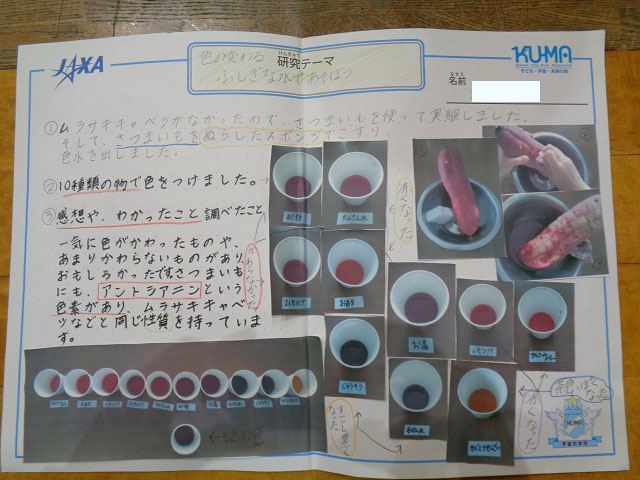 JAXA
色の変わる
ふしぎな水であそぼう
けんきゅう
研究テーマ
KU-MA
子ども・宇宙・未来の会
なまえ
名前
①ムラサキキャベツがなかったので、さつまいもを使って実験しました。
そして、さつまいもをぬらしたスポンジでこすり、
色水を出しました。
②10種類の物で色をつけました。
③感想や、わかったこと調べたこと
一気に色がかわったものや、
あまりかわらないものがあり、
おもしろかったです。さつまいも
にも、アントシアニンという
色素があり、ムラサキキャベ
ツなどと同じ性質を持っていま
す。
かわらなかった
赤くなった
たんさん水
お酒
お湯
レモン汁
じゅうそう
せっけん水
すこし黒くなった
赤くなった
茶色っぽくなった
←もとの色
KU-MA
宇宙の学校